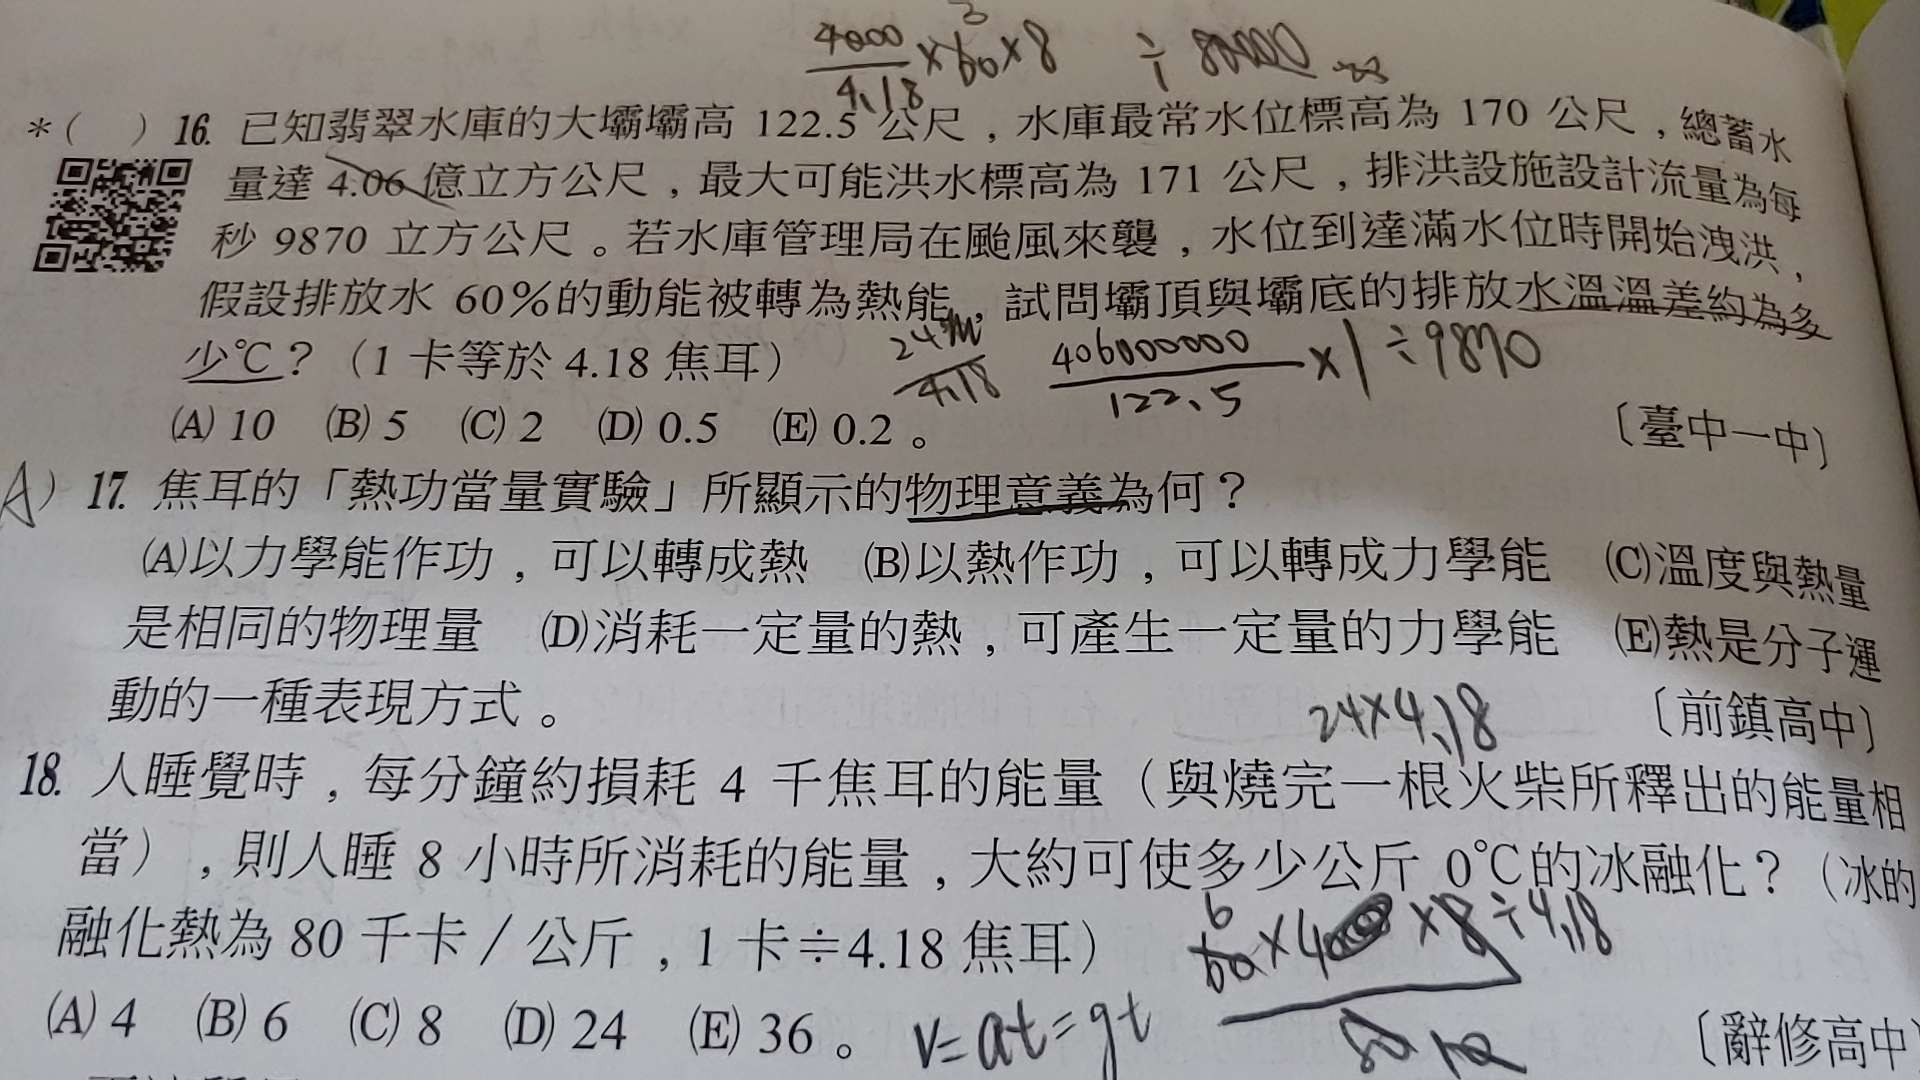 4000/4.18 × 60 × 8 ÷ 80000
3
*( ) 16. 已知翡翠水庫的大壩壩高 122.5 公尺，水庫最常水位標高為 170 公尺，總蓄水
量達 4.06 億立方公尺，最大可能洪水標高為 171 公尺，排洪設施設計流量為每
秒 9870 立方公尺。若水庫管理局在颱風來襲，水位到達滿水位時開始洩洪，
假設排放水 60%的動能被轉為熱能，試問壩頂與壩底的排放水溫溫差約為多
少℃？（1 卡等於 4.18 焦耳）
406000000/122.5 × 1 ÷ 9870
(A) 10 (B) 5 (C) 2 (D) 0.5 (E) 0.2 。 〔臺中一中〕
A) 17. 焦耳的「熱功當量實驗」所顯示的物理意義為何？
(A)以力學能作功，可以轉成熱 (B)以熱作功，可以轉成力學能 (C)溫度與熱量
是相同的物理量 (D)消耗一定量的熱，可產生一定量的力學能 (E)熱是分子運
動的一種表現方式。 〔前鎮高中〕
24×4.18
18. 人睡覺時，每分鐘約損耗 4 千焦耳的能量（與燒完一根火柴所釋出的能量相
當），則人睡 8 小時所消耗的能量，大約可使多少公斤 0℃的冰融化？（冰的
融化熱為 80 千卡／公斤，1 卡≑4.18 焦耳）
6
60×4 ×8÷4.18
(A) 4 (B) 6 (C) 8 (D) 24 (E) 36 。 〔辭修高中
v=at=gt